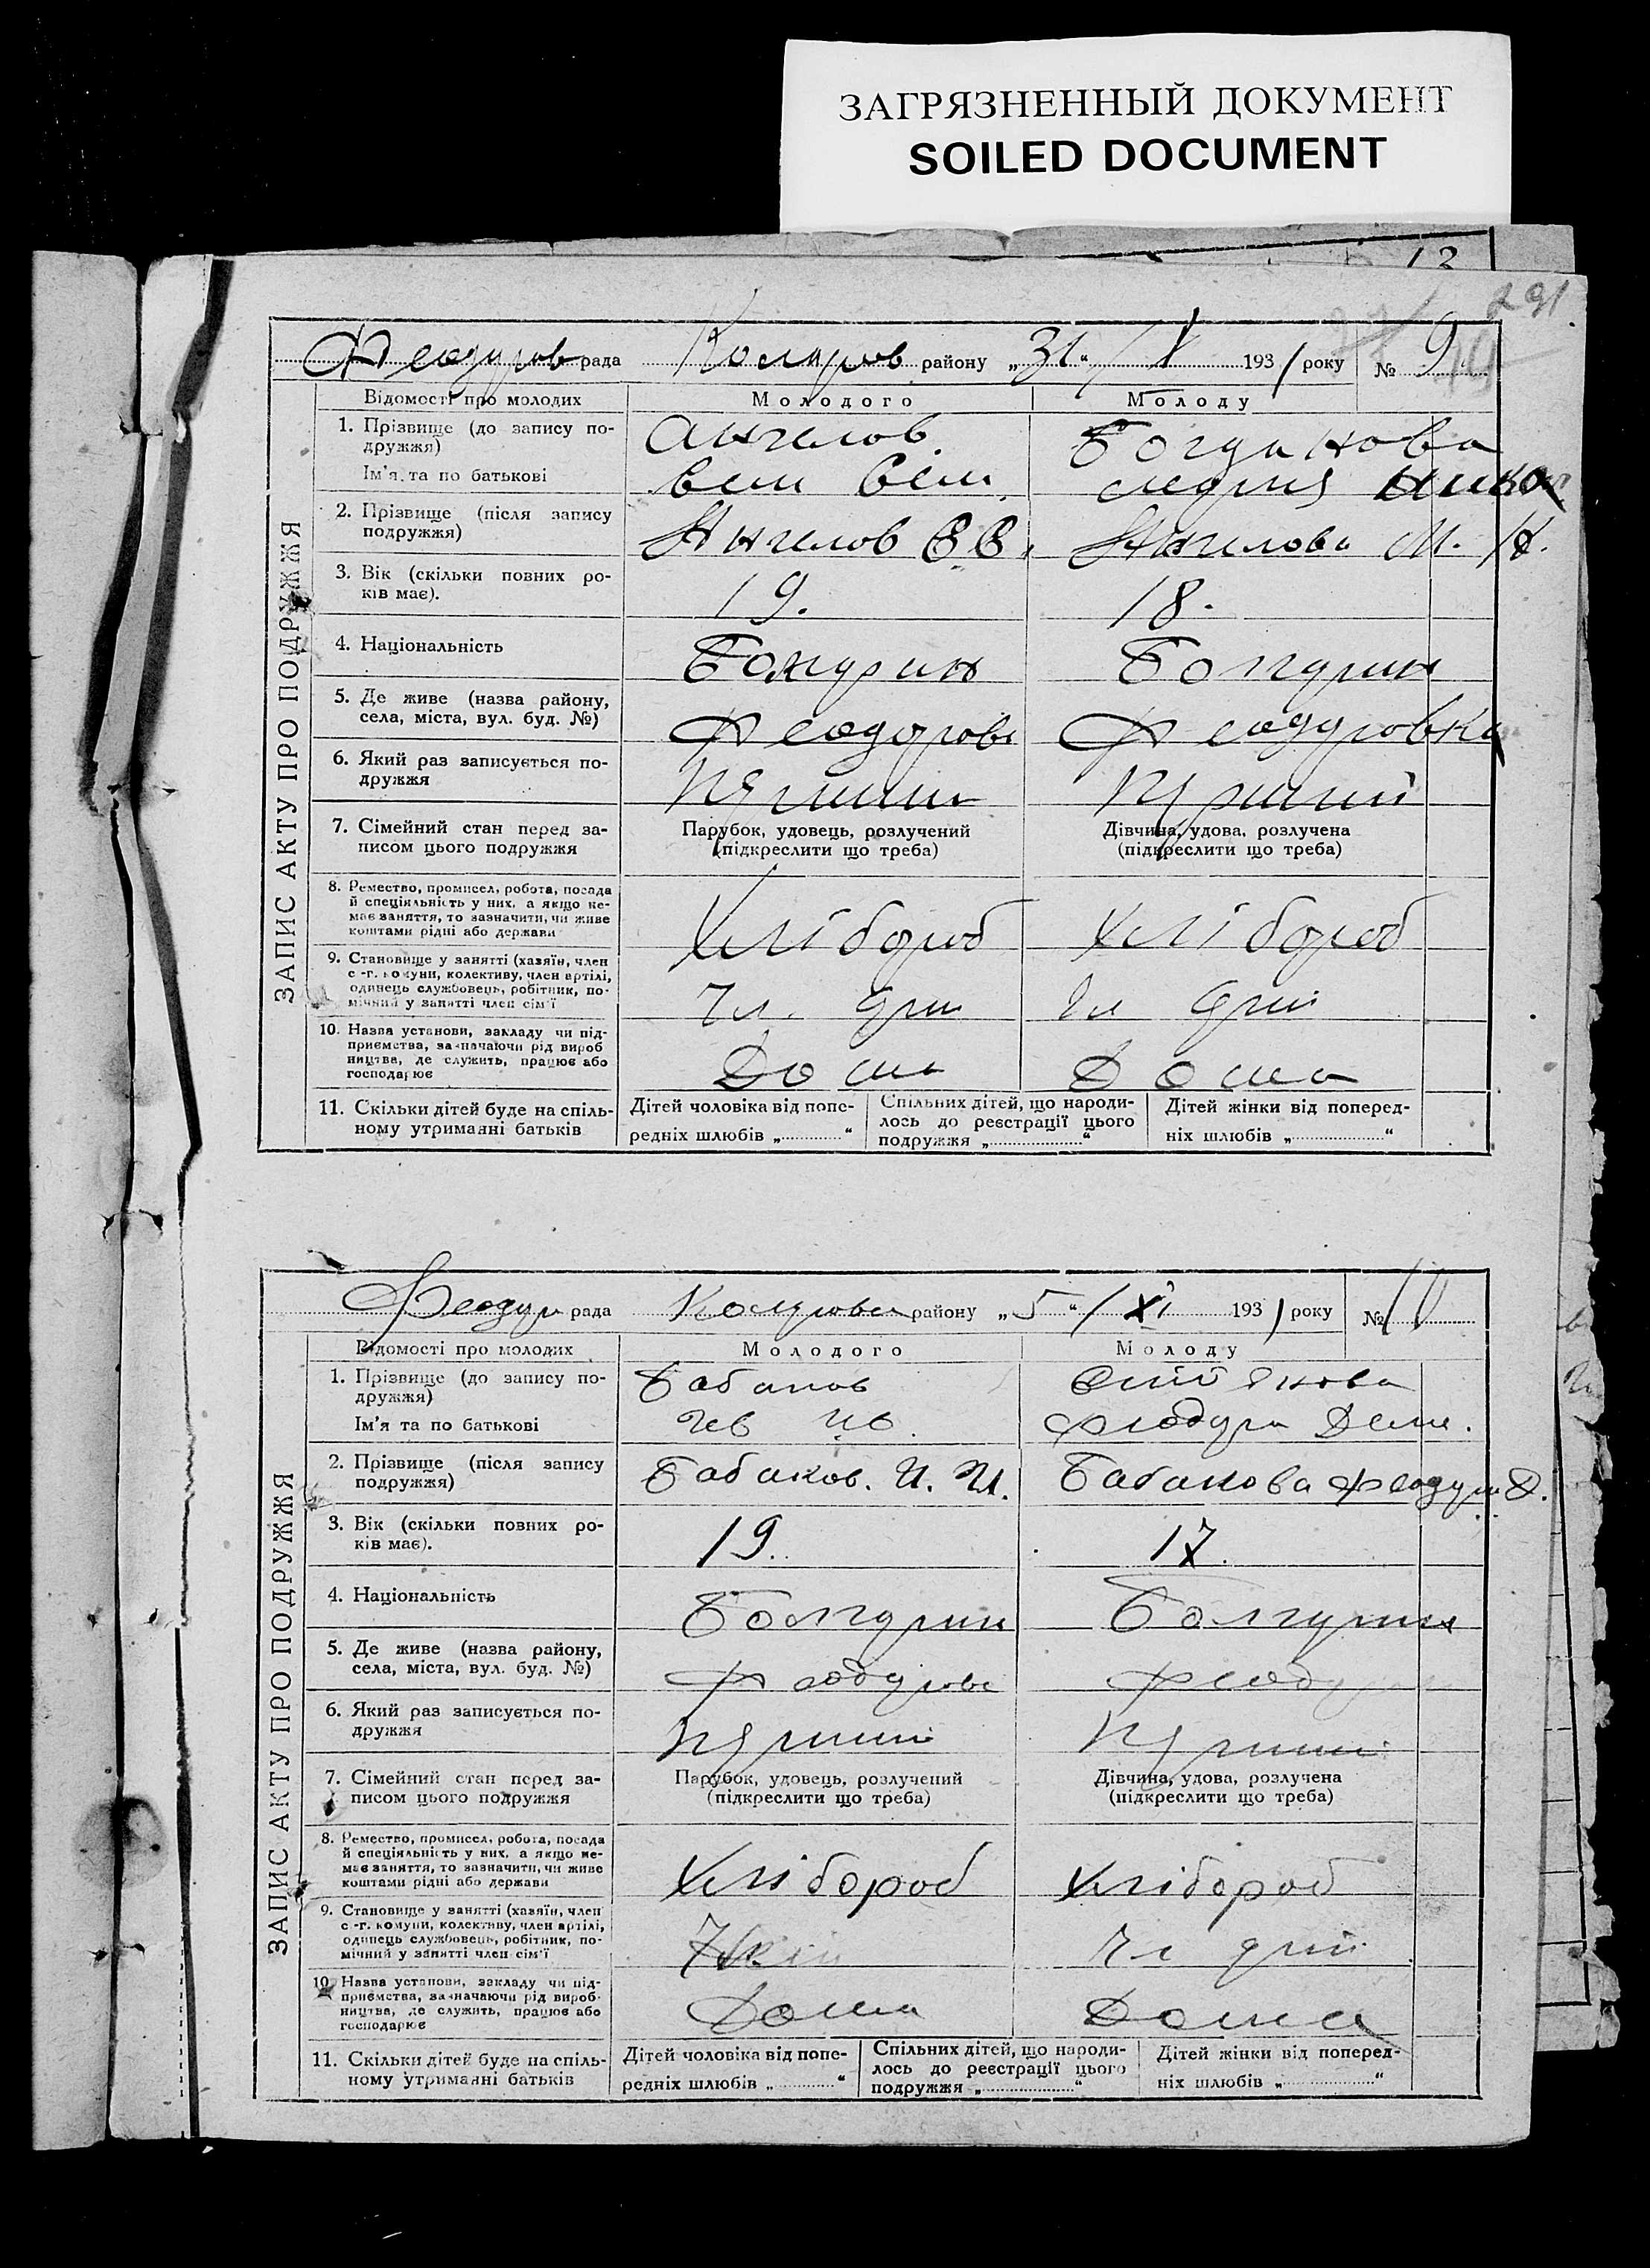 ЗАГРЯЗНЕННЫЙ ДОКУМЕНТ
SOILED DOCUMENT
13
291
Феодуров рада Коларов району „31“ / X 1931 року № 9
ЗАПИС АКТУ ПРО ПОДРУЖЖЯ
Відомості про молодих Молодого Молоду
1. Прізвище (до запису по-
дружжя) Ангелов Богданова
Ім'я та по батькові
2. Прізвище (після запису
подружжя) Ангелов В В. Ангелова М. Н.
3. Вік (скільки повних ро-
ків має). 19. 18.
4. Національність Болгарин Болгарин
5. Де живе (назва району,
села, міста, вул. буд. №) Феодоров Феодуровка
6. Який раз записується по-
дружжя
7. Сімейний стан перед за-
писом цього подружжя
Парубок, удовець, розлучений
(підкреслити що треба)
Дівчина, удова, розлучена
(підкреслити що треба)
8. Ремество, промисел, робота, посада
й спеціяльність у них, а якщо не-
має заняття, то зазначити, чи живе
коштами рідні або держави
Хлібороб Хлібороб
9. Становище у занятті (хазяїн, член
с.-г. комуни, колективу, член артілі,
одинець службовець, робітник, по-
мічний у занятті член сім'ї
10. Назва установи, закладу чи під-
приємства, зазначаючи рід вироб
ництва, де служить, працює або
господарює
Дома Дома
11. Скільки дітей буде на спіль-
ному утриманні батьків
Дітей чоловіка від попе-
редніх шлюбів „ “
Спільних дітей, що народи-
лось до реєстрації цього
подружжя „ “
Дітей жінки від поперед-
ніх шлюбів „ “
Феодур рада району „5“ / XI 1931 року № 10
ЗАПИС АКТУ ПРО ПОДРУЖЖЯ
Відомості про молодих Молодого Молоду
1. Прізвище (до запису по-
дружжя) Бабаков
Ім'я та по батькові
2. Прізвище (після запису
подружжя) Бабаков. И. И. Бабакова Феодура Д.
3. Вік (скільки повних ро-
ків має). 19. 17.
4. Національність Болгарин Болгарин
5. Де живе (назва району,
села, міста, вул. буд. №)
6. Який раз записується по-
дружжя
7. Сімейний стан перед за-
писом цього подружжя
Парубок, удовець, розлучений
(підкреслити що треба)
Дівчина, удова, розлучена
(підкреслити що треба)
8. Ремество, промисел, робота, посада
й спеціяльність у них, а якщо не-
має заняття, то зазначити, чи живе
коштами рідні або держави
Хлібороб Хлібороб
9. Становище у занятті (хазяїн, член
с.-г. комуни, колективу, член артілі,
одинець службовець, робітник, по-
мічний у занятті член сім'ї
10. Назва установи, закладу чи під-
приємства, зазначаючи рід вироб-
ництва, де служить, працює або
господарює
Дома Дома
11. Скільки дітей буде на спіль-
ному утриманні батьків
Дітей чоловіка від попе-
редніх шлюбів „ “
Спільних дітей, що народи-
лось до реєстрації цього
подружжя „ “
Дітей жінки від поперед-
ніх шлюбів „ “